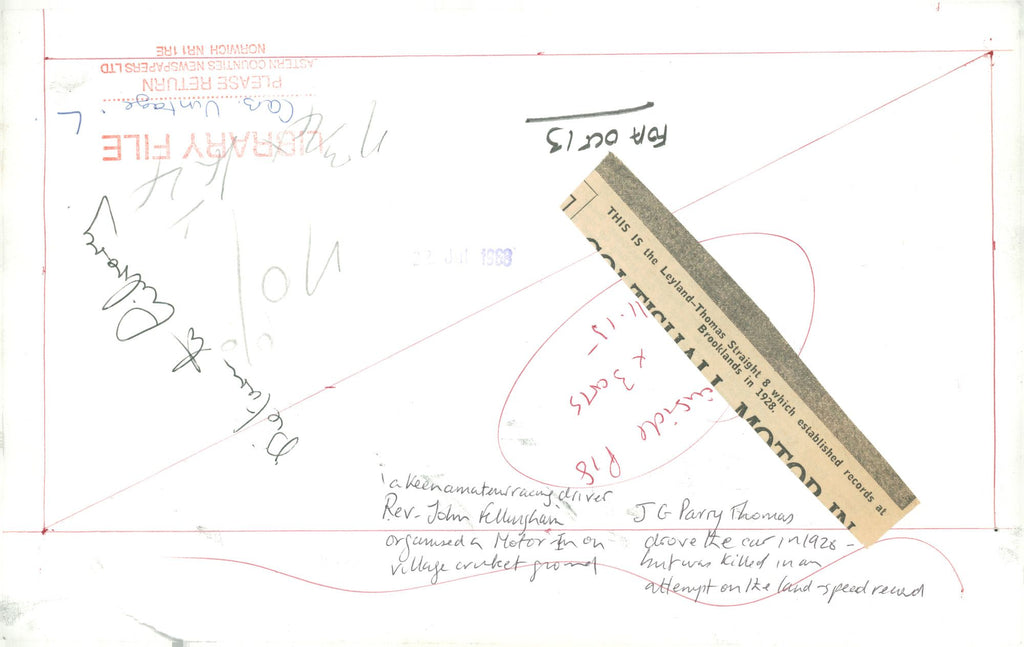 LIBRARY FILE
Cars Vintage : L
PLEASE RETURN
EASTERN COUNTIES NEWSPAPERS LTD
NORWICH NR1 1RE
FOR OCT 13
22 JUL 1993
THIS IS the Leyland-Thomas Straight 8 which established records at
Brooklands in 1928.
COLTISHALL MOTOR IN
inside P18
x 3 cols
11.15-
No
%
a keen amateur racing driver
Rev. John Fellingham
organised a Motor In on
village cricket ground
J G Parry Thomas
drove the car in 1928 -
but was killed in an
attempt on the land-speed record